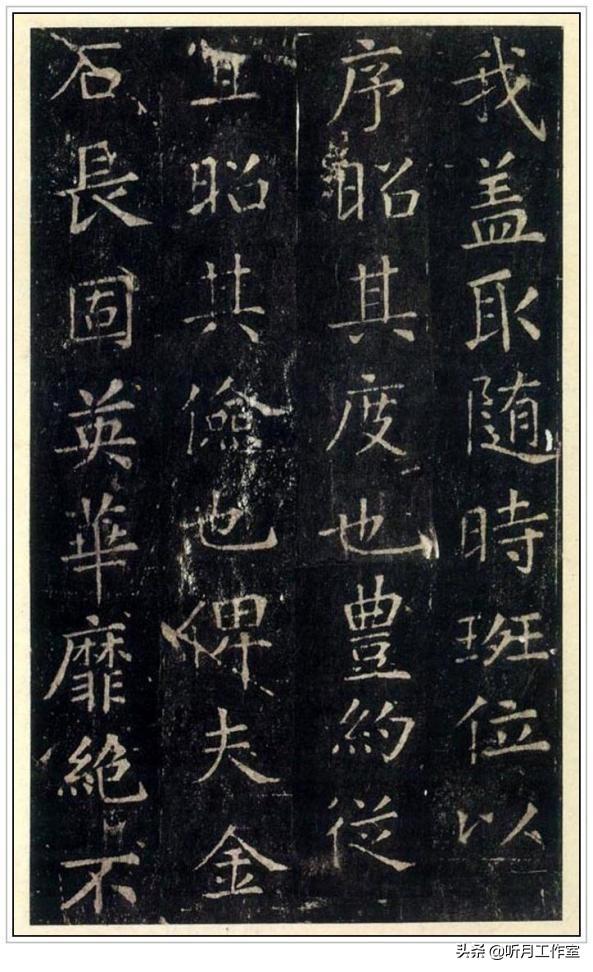 我盖取随時班位以
序昭其度也豊約従
宜昭其儉也俾夫金
石長固英華靡絶不
头条 @听月工作室